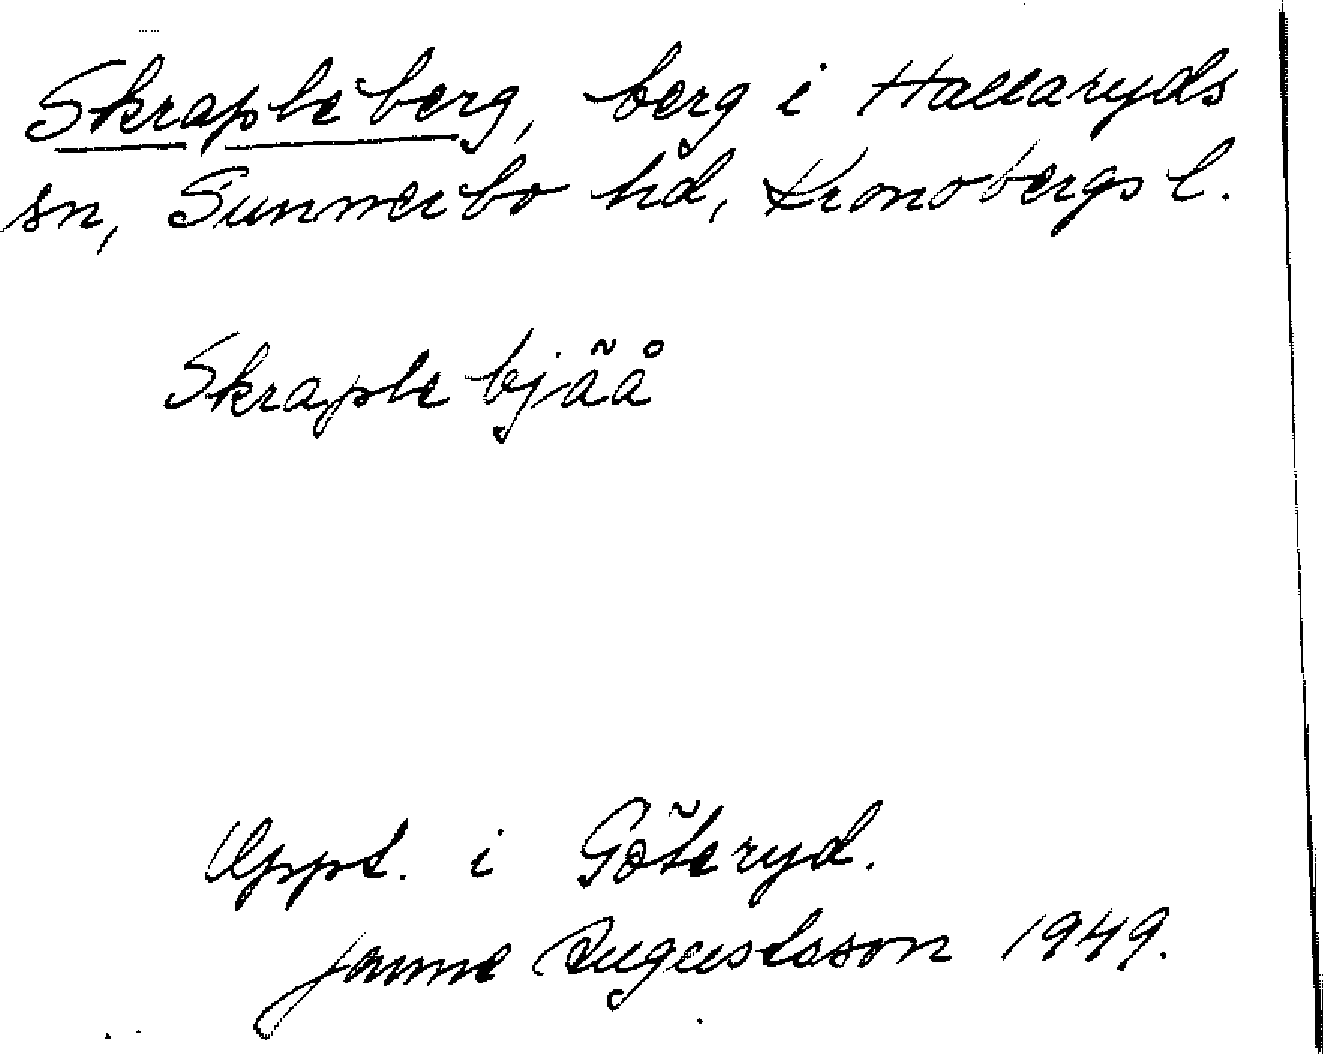 Skrapleberg, berg i Hallaryds
sn, Sunnerbo hd, Kronobergs l.
Skraplebjäå
Uppt. i Göteryd.
Janne Augustsson 1949.